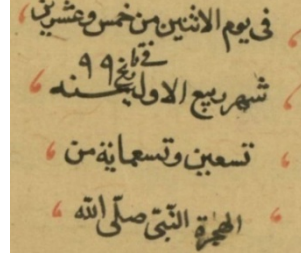 فى يوم الاثنين من خمس وعشرين
فى تاريخ ٩٩
شهر ربيع الاول سنه
تسعين وتسعماية من
الهجرة النبى صلى الله